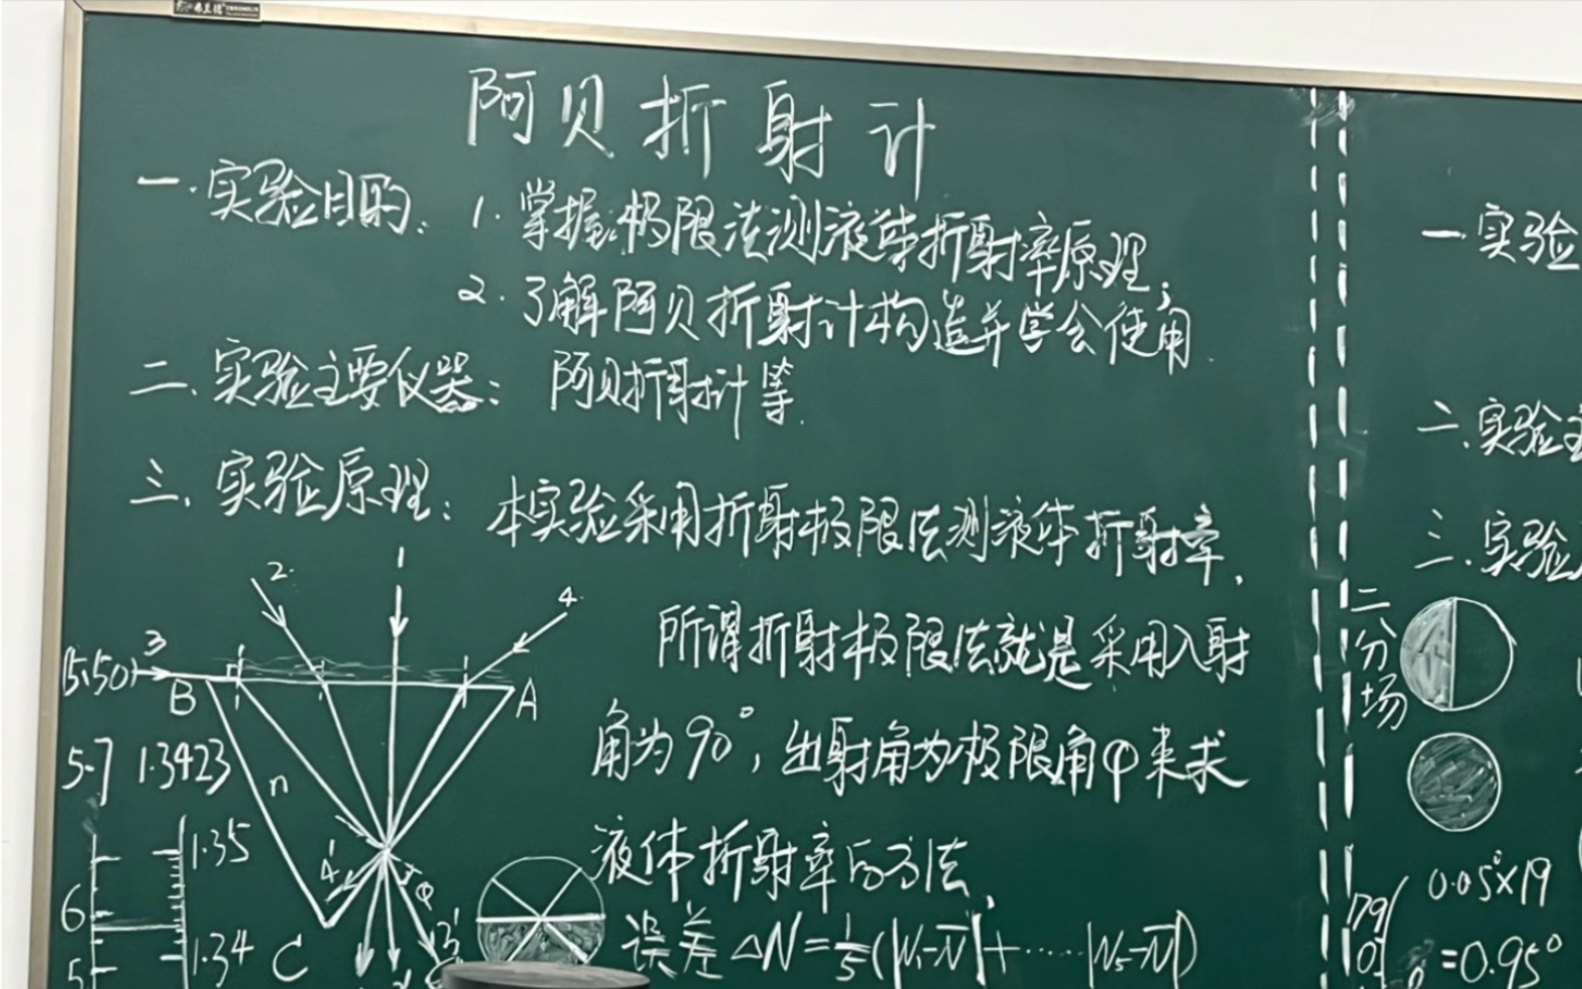 阿贝折射计
一.实验目的: 1.掌握极限法测液体折射率原理;
2.了解阿贝折射计构造并学会使用.
二.实验主要仪器: 阿贝折射计等.
三.实验原理: 本实验采用折射极限法测液体折射率,
所谓折射极限法就是采用入射
角为90°,出射角为极限角φ来求
液体折射率的方法.
误差 ΔN=1/5(|N₁-N̄|+·····|N₅-N̄|)
1
2
3
4
B
A
5.7 1.3423
n
1.35
4'
φ
6
1.34
C
3'
5
一.实验
二.实验主
三.实验
二分场
0.05°×19
=0.95°